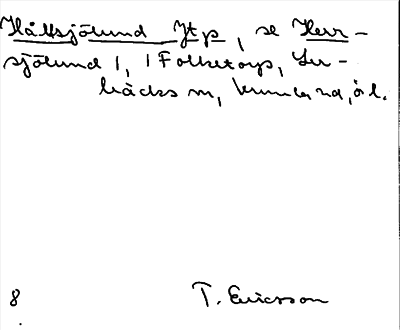 Håltsjölund Jtp, se Herr-
sjölund 1, i Folketorps, Ler-
bäcks sn, Kumla hd, ö l.
8 T. Ericsson